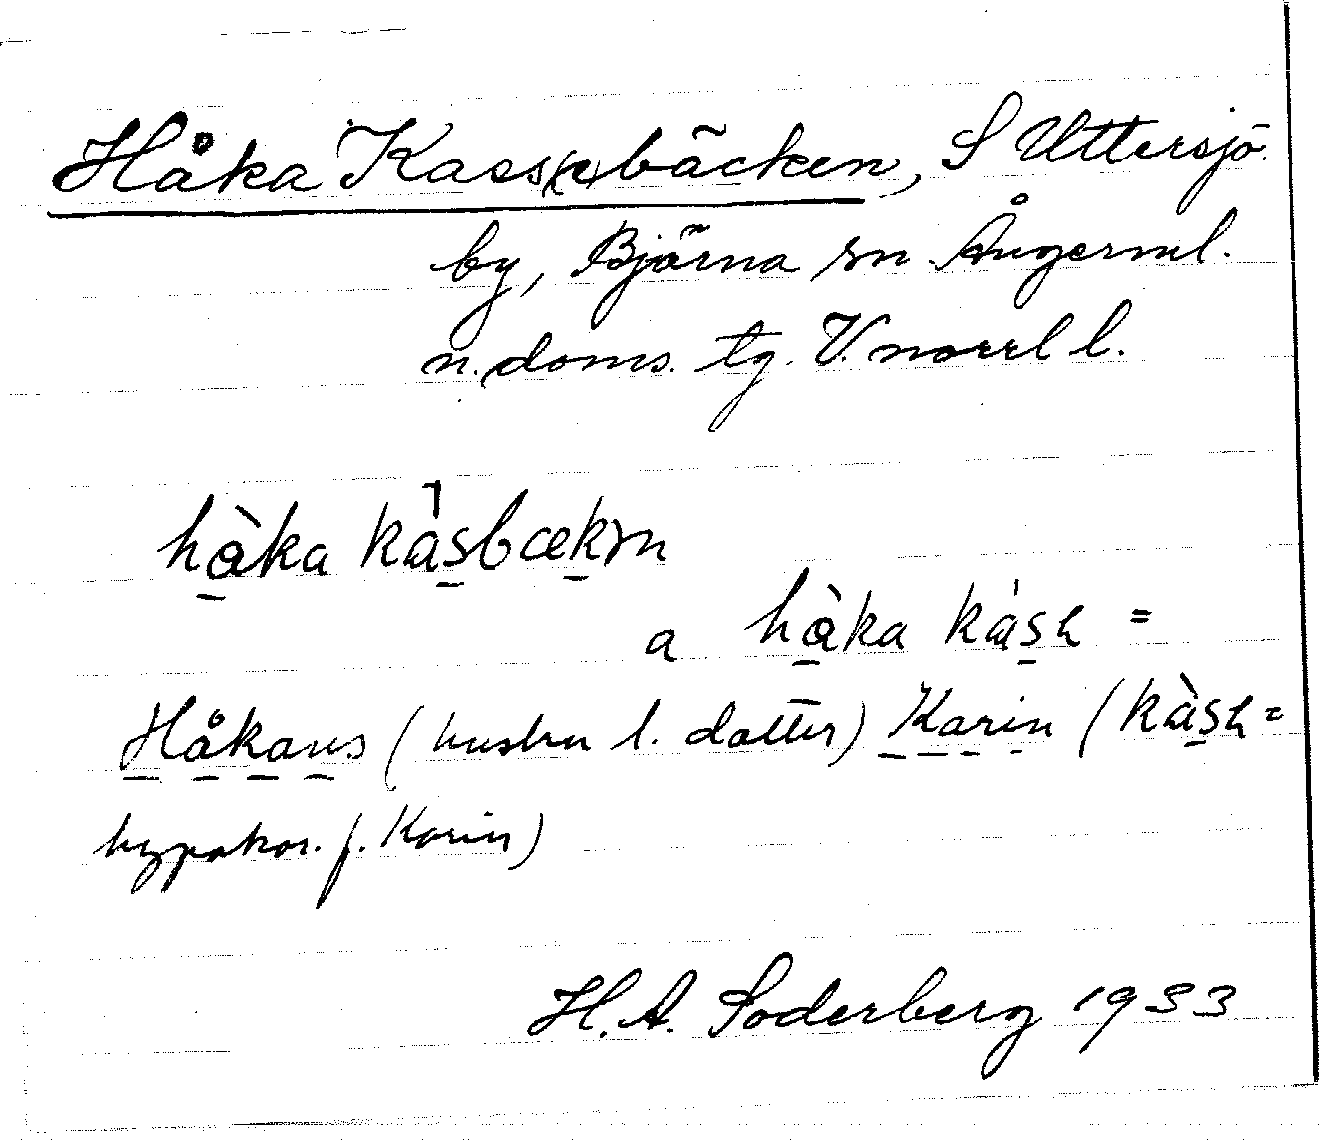 Håka Kass(e)bäcken, S Uttersjö
by, Björna sn Ångerml.
n. doms. tg. V. norrl l.
hàka kásbækn
a hàka kásɩ =
Håkans (hustru l. dotter) Karin (kàsɩ =
hypokor. f. Karin)
H. A. Soderberg 1933